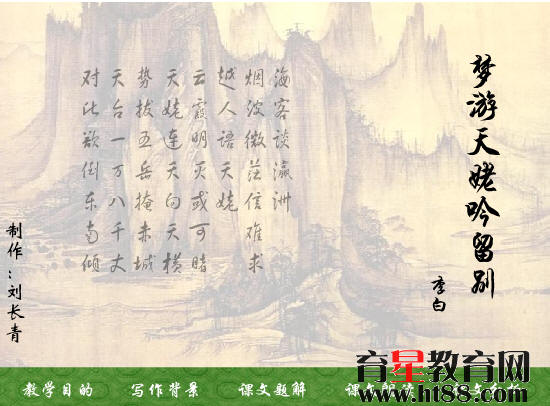 梦游天姥吟留别
李白
海客谈瀛洲
烟波微茫信难求
越人语天姥
云霞明灭或可睹
天姥连天向天横
势拔五岳掩赤城
天台一万八千丈
对此欲倒东南倾
制作：刘长青
教学目的 写作背景 课文题解
育星教育网
www.ht88.com